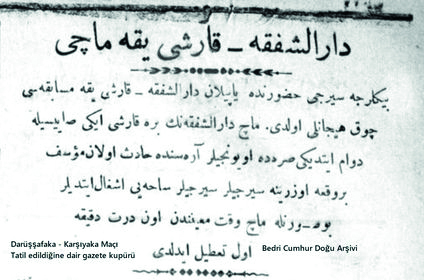 دارالشفقه ـ قارشی یقه ماچی
بیكلرجه سیرجی حضورنده یاپیلان دارالشفقه ـ قارشی یقه مسابقه‌سی
چوق هیجانلی اولدی. ماچ دارالشفقه‌نك بره قارشی ایكی صاییسیله
دوام ایتدیكی صره‌ده اویونجیلر آره‌سنده حادث اولان مؤسف
بر وقعه اوزرینه سیرجیلر ساحه‌یی اشغال ایتدیلر
بو صورتله ماچ وقت معیندن اون درت دقیقه
اول تعطیل ایدلدی
Darüşşafaka - Karşıyaka Maçı
Tatil edildiğine dair gazete kupürü
Bedri Cumhur Doğu Arşivi